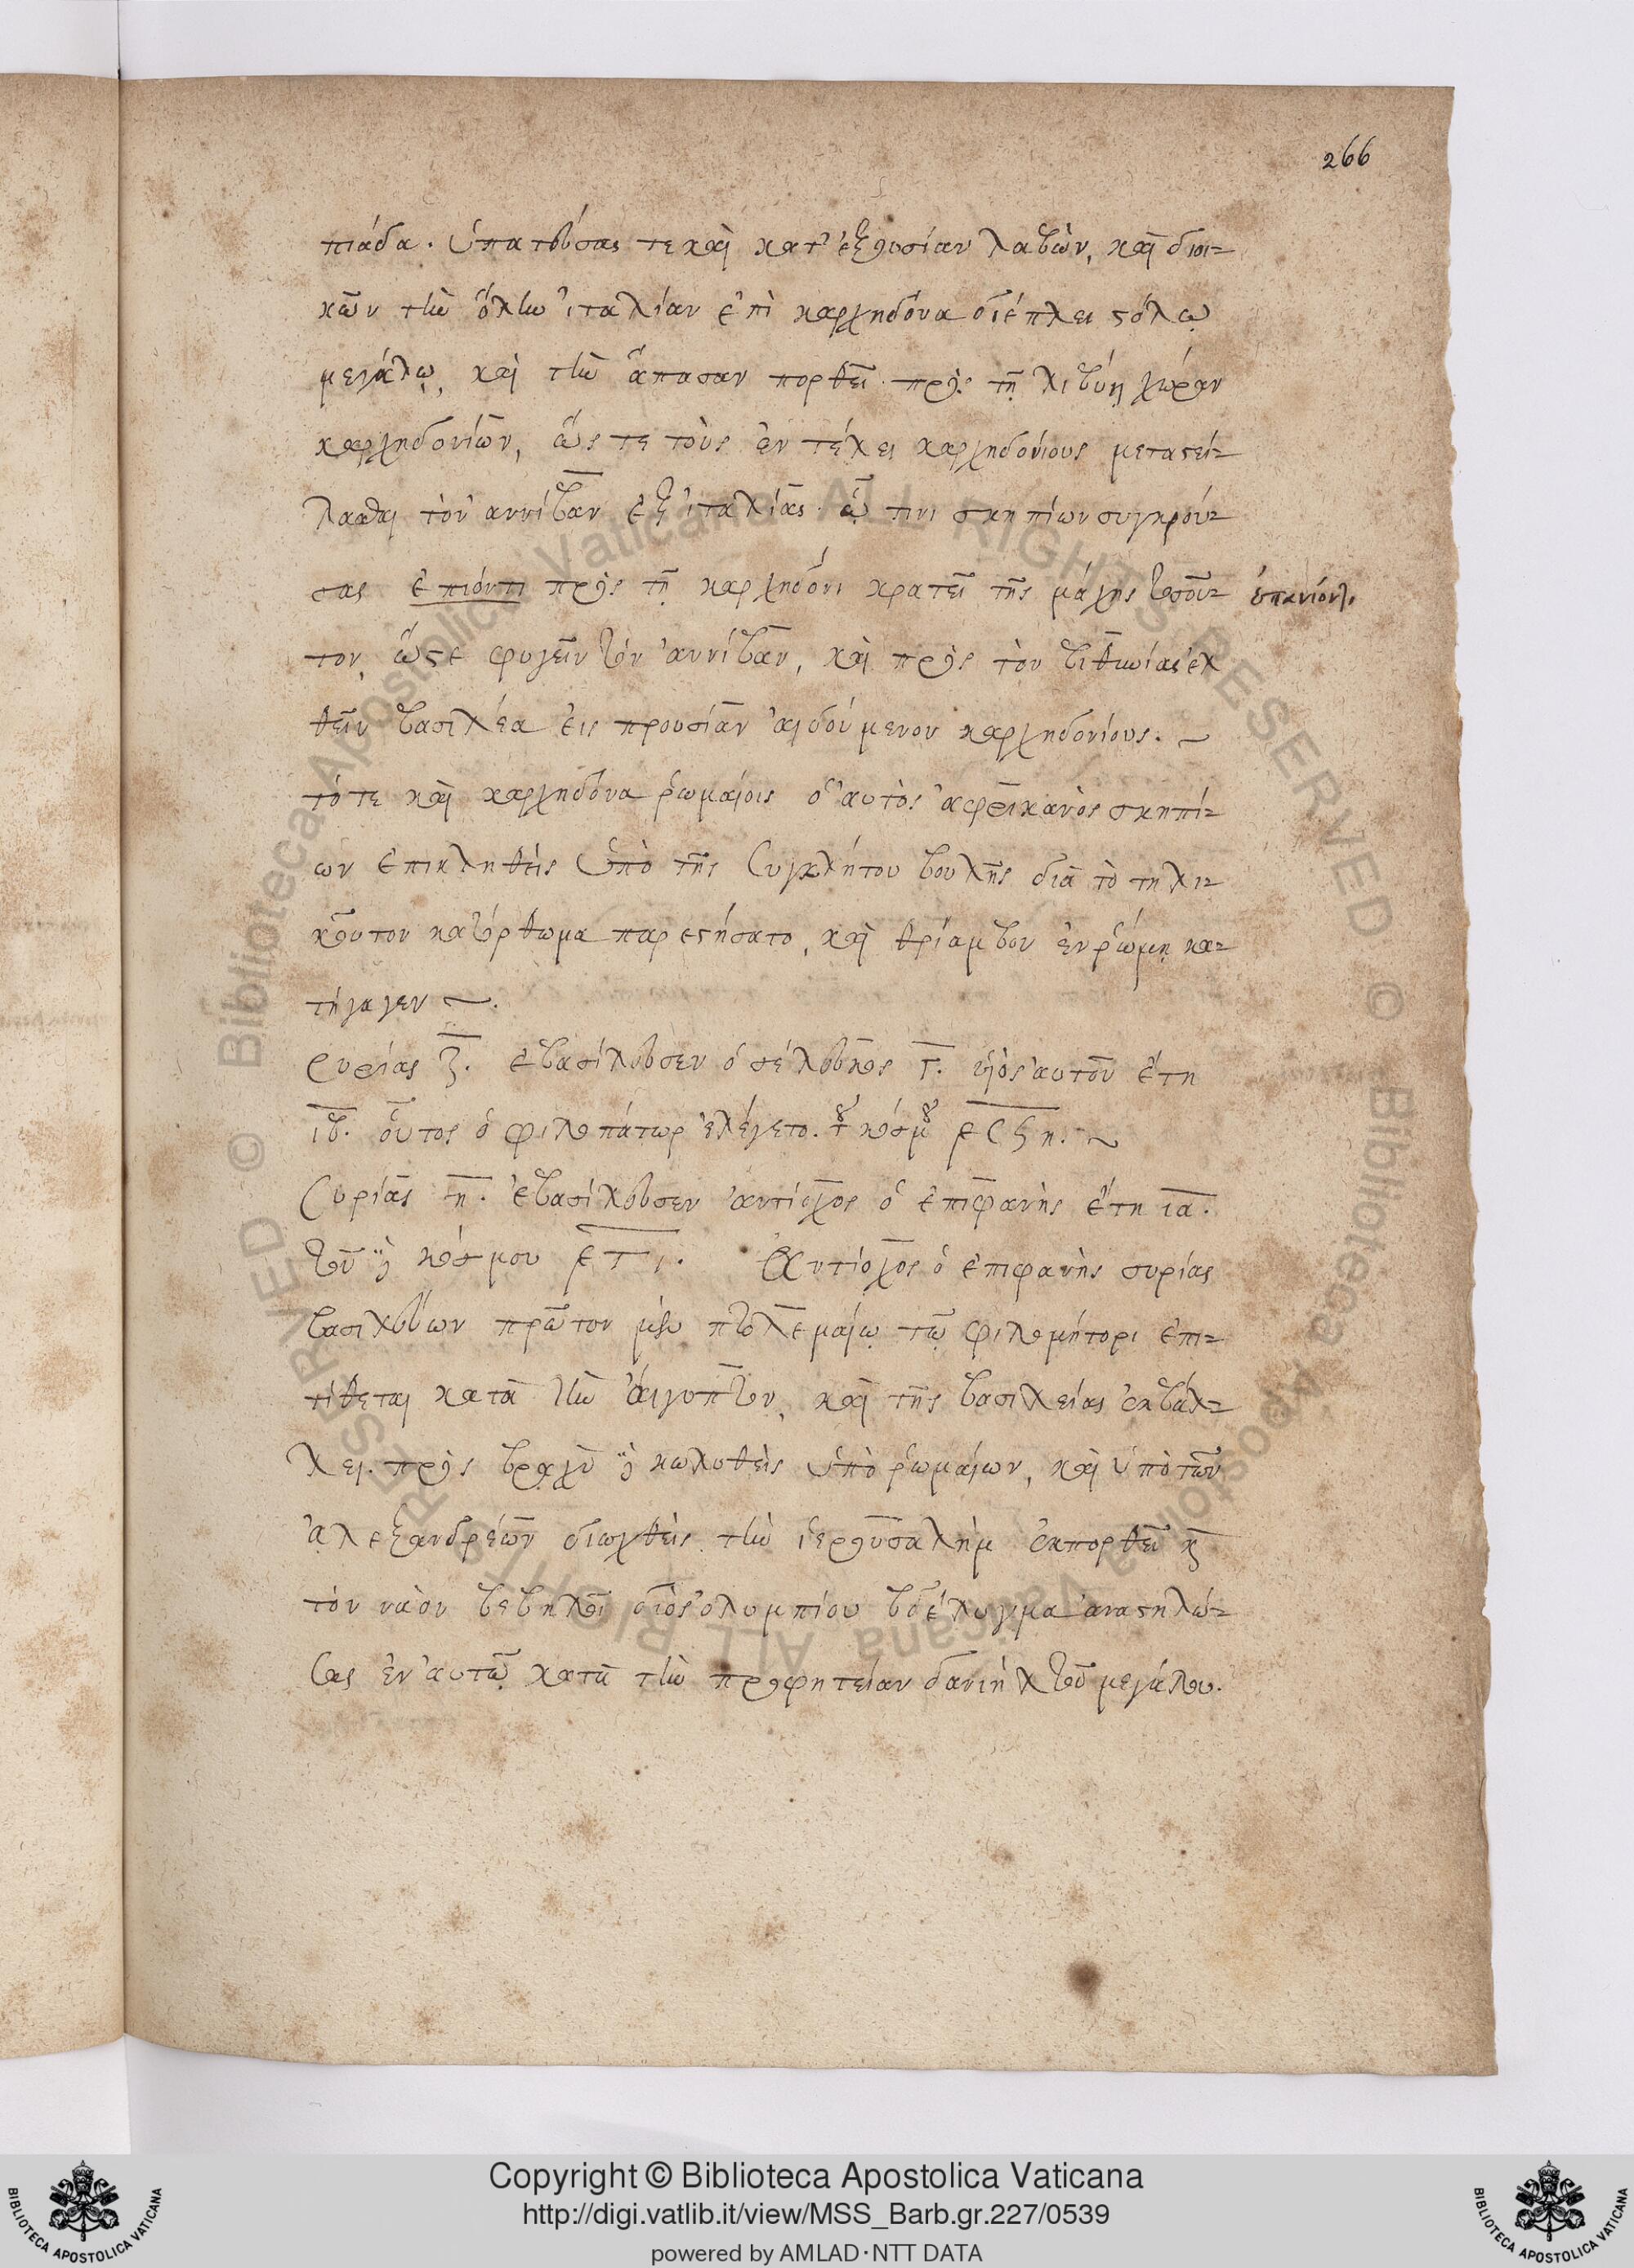 266
πιάδα. ὑπατεύσας τε καὶ κατ' ἐξουσίαν λαβὼν, καὶ διοι-
κῶν τὴν ὅλην ἰταλίαν ἐπὶ καρχηδόνα διέπλει στόλῳ
μεγάλῳ, καὶ τὴν ἅπασαν πορθεῖ πρὸς τῇ λιβύῃ χώραν
καρχηδονίων, ὥς τε τοὺς ἐν τέλει καρχηδονίους μεταστεί-
λασθαι τὸν ἀννίβαν ἐξ ἰταλίας. ᾧ τινι σκηπίων συγκρού-
σας ἐπιόντι πρὸς τῇ καρχηδόνι κρατεῖ τῆς μάχης τοσοῦ-
ἐπανιόντι
τον, ὥστε φυγεῖν τὸν ἀννίβαν, καὶ πρὸς τὸν βιθυνίας ἐλ
θεῖν βασιλέα εἰς προυσίαν αἰδούμενον καρχηδονίους. ~
τότε καὶ καρχηδόνα ῥωμαίοις ὁ αὐτὸς ἀφρικανὸς σκηπί-
ων ἐπικληθεὶς ὑπὸ τῆς συγκλήτου βουλῆς διὰ τὸ τηλι-
κοῦτον κατόρθωμα παρεστήσατο, καὶ θρίαμβον ἐν ῥώμῃ κα-
τήγαγεν ~.
συρίας ζ. ἐβασίλευσεν ὁ σέλευκος γ. υἱὸς αὐτοῦ ἔτη
ιβ. οὗτος ὁ φιλοπάτωρ ἐλέγετο. τοῦ κόσμου ͵εϛϟη. ~
συρίας η. ἐβασίλευσεν ἀντίοχος ὁ ἐπιφανὴς ἔτη ια.
τοῦ δὲ κόσμου ͵ετι. Ἀντίοχος ὁ ἐπιφανὴς συρίας
βασιλεύων πρῶτον μὲν πτολεμαίῳ τῷ φιλομήτορι ἐπι-
τίθεται κατὰ τὴν αἴγυπτον, καὶ τῆς βασιλείας ἐκβάλ-
λει. πρὸς βραχὺ δὲ κωλυθεὶς ὑπὸ ῥωμαίων, καὶ ὑπὸ τῶν
ἀλεξανδρέων διωχθεὶς τὴν ἱερουσαλὴμ ἐκπορθεῖ κς
τὸν ναὸν βεβηλοῖ διὸς ὀλυμπίου βδέλυγμα ἀναστηλώ-
σας ἐν αὐτῷ κατὰ τὴν προφητείαν δανιὴλ τοῦ μεγάλου.
© Biblioteca Apostolica Vaticana ALL RIGHTS RESERVED © Biblioteca Apostolica Vaticana ALL RIGHTS RESERVED
Copyright © Biblioteca Apostolica Vaticana
http://digi.vatlib.it/view/MSS_Barb.gr.227/0539
powered by AMLAD·NTT DATA
BIBLIOTECA APOSTOLICA VATICANA
BIBLIOTECA APOSTOLICA VATICANA